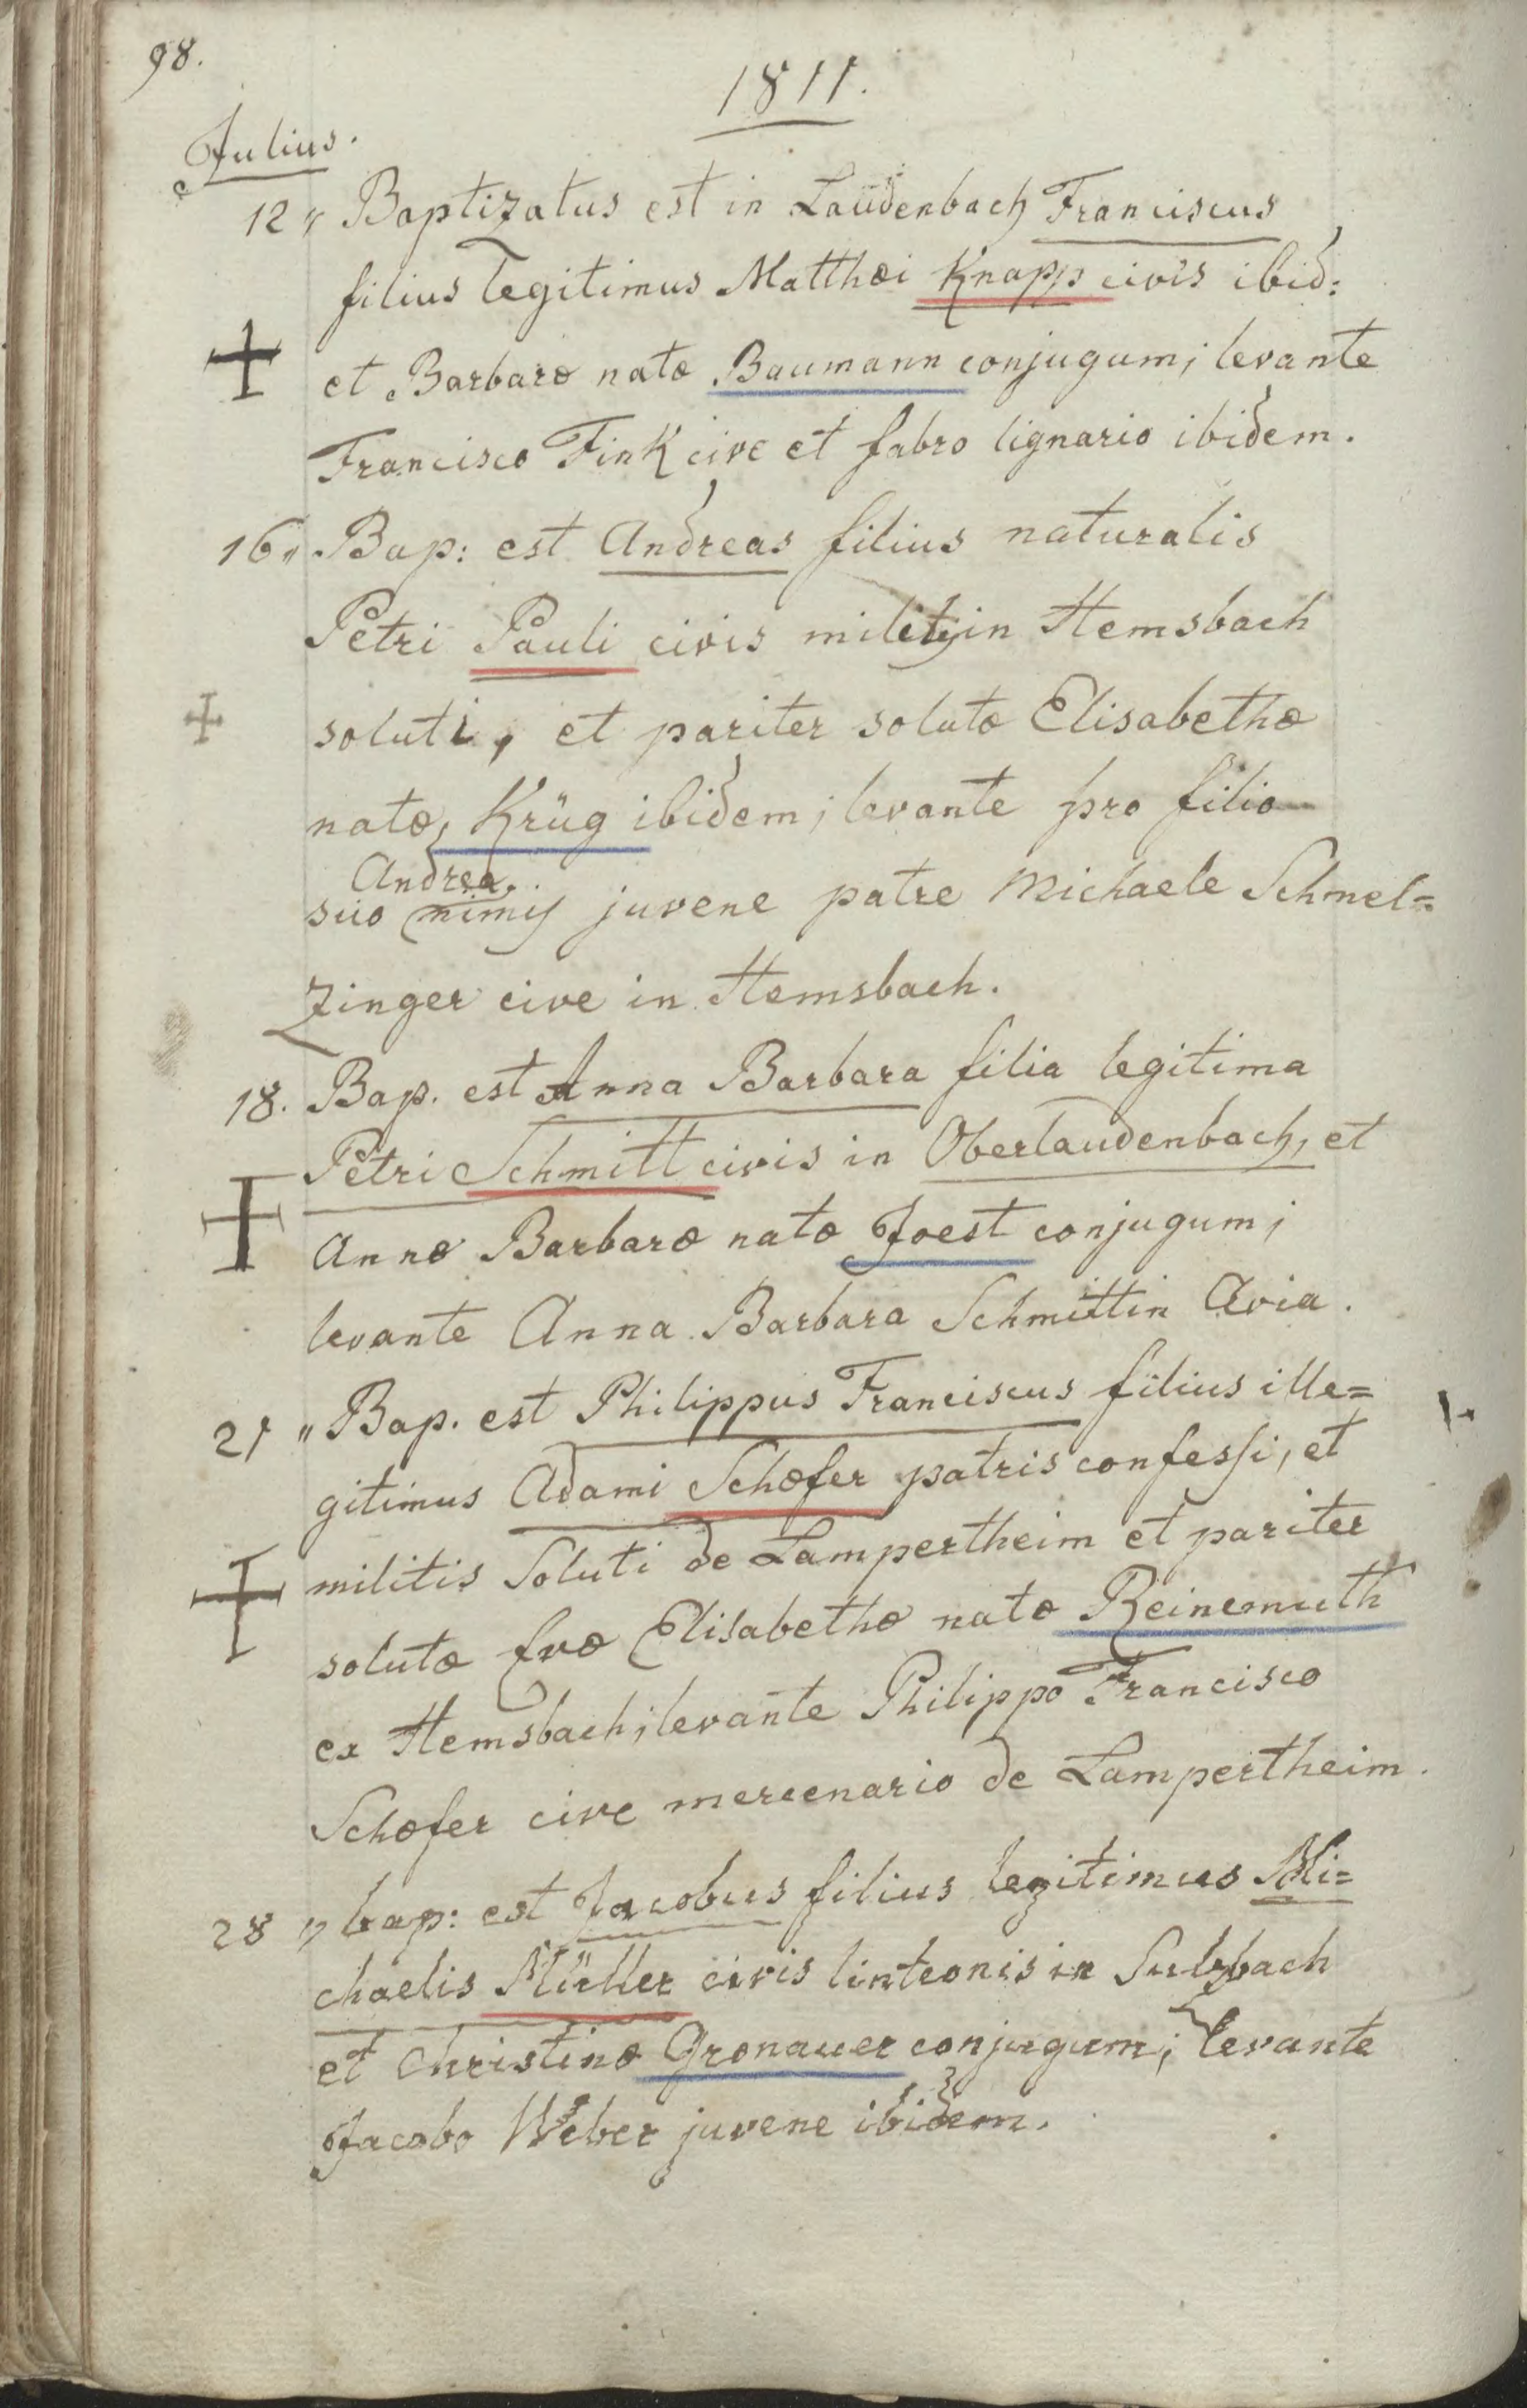 98.
1811.
Julius.
12 " Baptizatus est in Laudenbach Franciscus
filius legitimus Matthæi Knapp civis ibid:
et Barbaræ natæ Baumann conjugum; levante
Francisco Fink cive et fabro lignario ibidem.
16 " Bap: est Andreas filius naturalis
Petri Pauli civis in Hemsbach
soluti, et pariter solutæ Elisabethæ
natæ, Krüg ibidem; levante pro filio
Andrea
suo juvene patre Michaele Schmel=
zinger cive in Hemsbach.
18. Bap. est Anna Barbara filia legitima
Petri Schmitt civis in Oberlaudenbach, et
Annæ Barbaræ natæ Joest conjugum;
levante Anna Barbara Schmittin Avia.
21 " Bap. est Philippus Franciscus filius ille=
gitimus Adami Schæfer patris confessi, et
militis Soluti de Lampertheim et pariter
solutæ Evæ Elisabethæ natæ Reinemuth
ex Hemsbach; levante Philippo Francisco
Schæfer cive mercenario de Lampertheim.
28 " bap: est Jacobus filius legitimus Mi=
chaelis Müller civis linteonis in Sulzbach
et Christinæ Gronauer conjugum; levante
Jacobo Weber juvene ibidem.